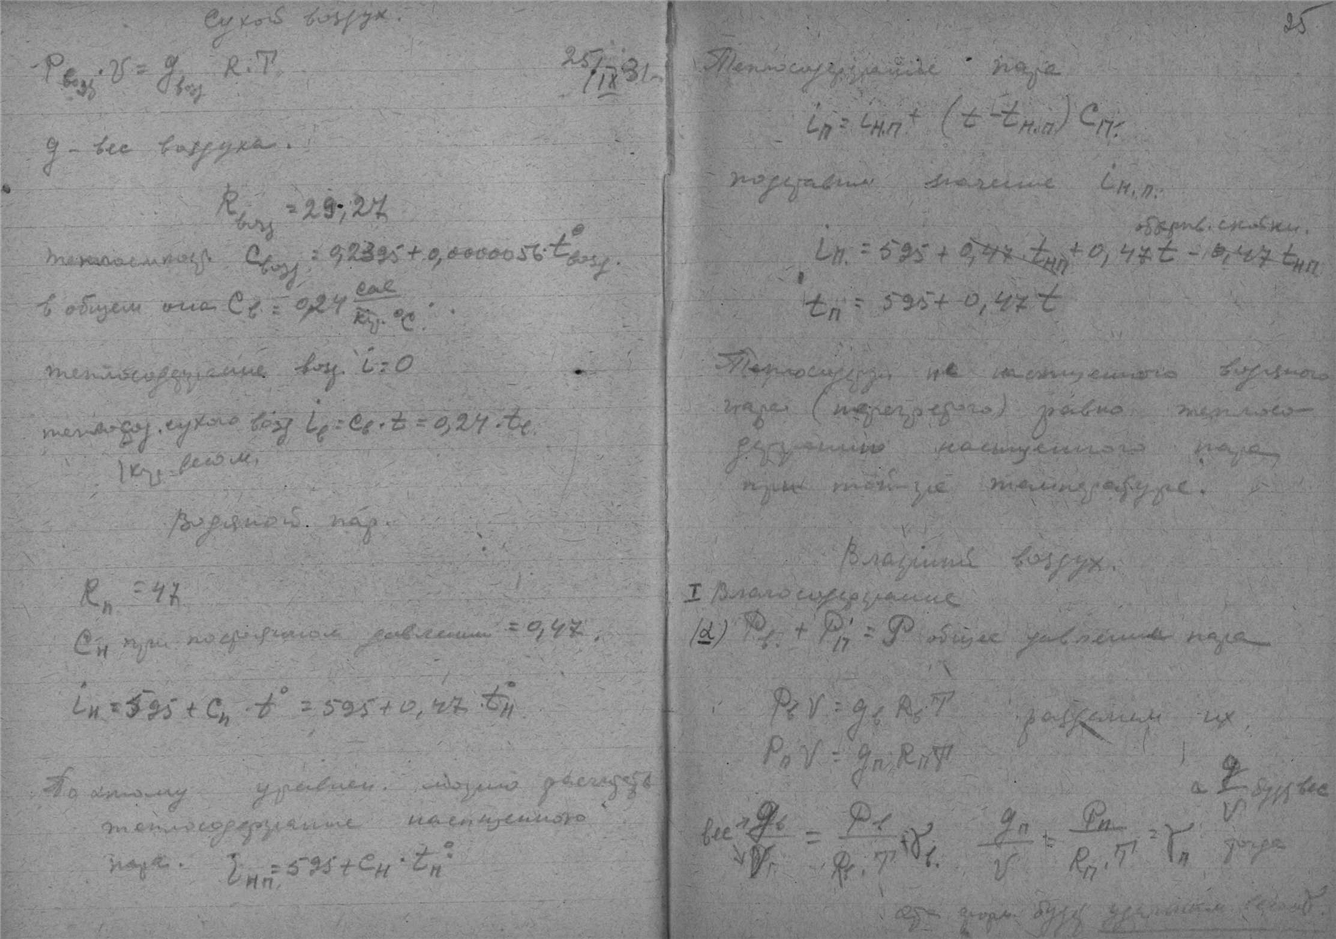 Сухой воздух.
Pвозд·V = gвозд R·T. 25/IX 31
g – вес воздуха.
Rвозд = 29,27
теплоемкость Cвозд. = 0,2395 + 0,0000056·t°возд.
в общем она Cв = 0,24 cal/кгр. °C.
теплосодержание воз. i = 0
теплосод. сухого возд iв = cв·t = 0,24·tв.
1 кгр весом.
Водяной пар.
Rп = 47
Cн при постоянном давлении = 0,47.
iн = 595 + cп·t° = 595 + 0,47·t°н
По этому уравнен. можно расчитать
теплосодержание насыщенного
пара. iнп = 595 + cн·tн°
25
Теплосодержание пара
iп = iн.п. + (t - tн.п) Cп.
подставим значение iн.п.
скобки.
iп. = 595 + 0,47 tнп + 0,47 t - 0,47 tнп
iп = 595 + 0,47 t
Теплосодерж не насыщенного водяного
пара (перегретого) равно теплосо-
держанию насыщенного пара
при той же температуре.
Влажный воздух.
I Влагосодержание
(α) Pв. + Pп = P общее давление пара
Pв V = gв Rв T разделим их
Pп V = gп Rп T
а g/V будет вес
вес gв/V = Pв/Rв·T = γв. gп/V = Pп/Rп·T = γп тогда
будет удельным весом.